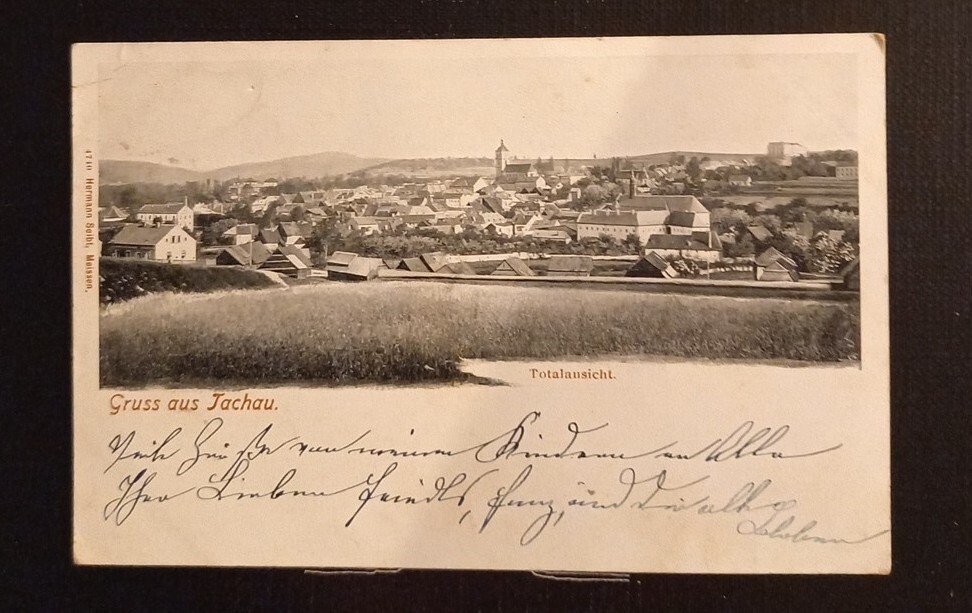 4740 Hermann Seibt, Meissen.
Totalansicht.
Gruss aus Tachau.
Viele Grüße von meinen Kindern an Alle
Ihre Lieben und die alte